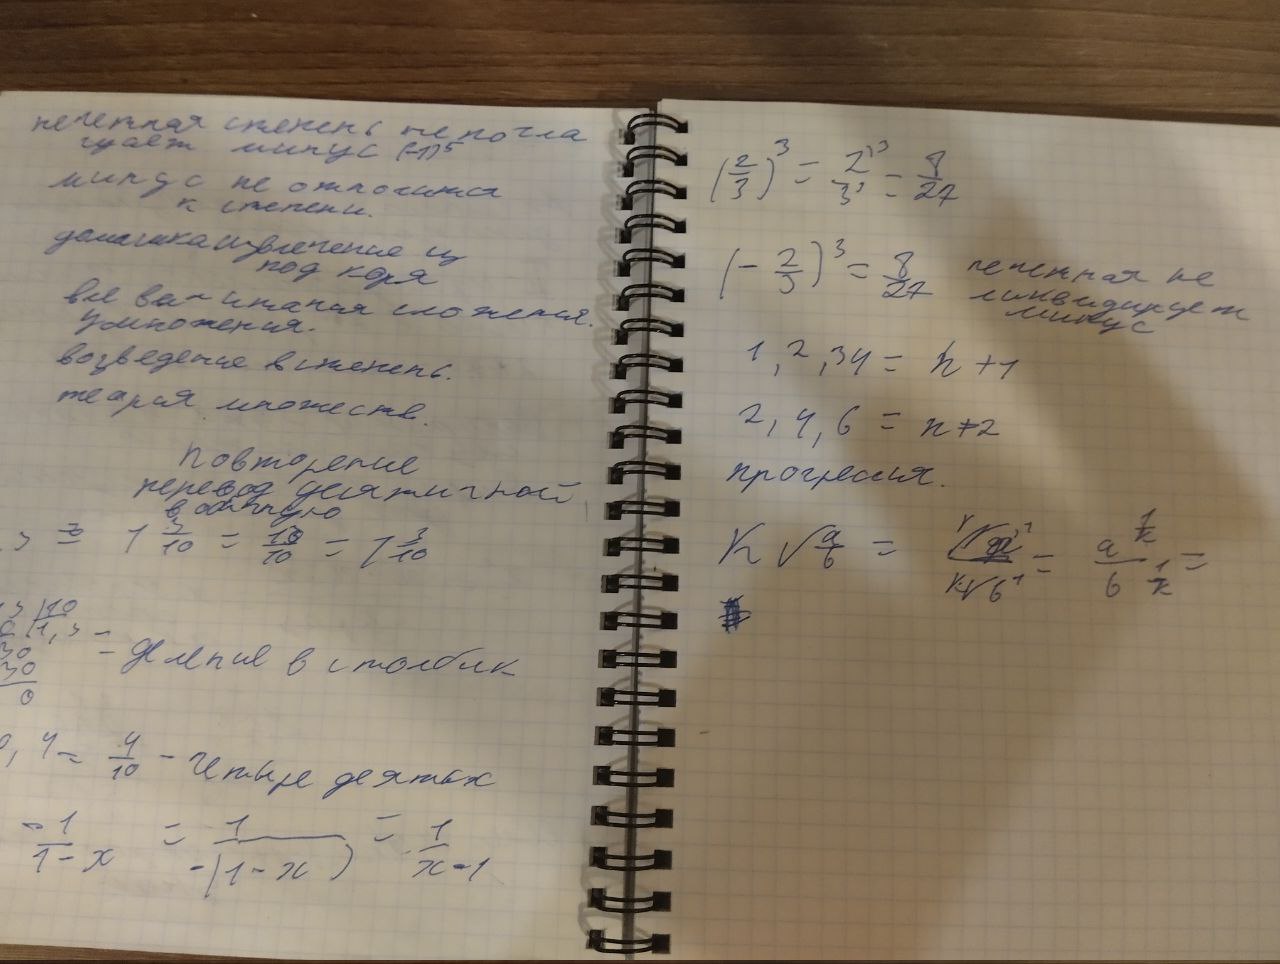 нечетная степень не погла
щает минус (-1)⁵
минус не относится
к степени.
домашка извлечение из
под коря
вычитания сложения.
умножения.
возведение в степень.
теория множеств.
Повторение
перевод десятичной
в обычную
,3 = 1 3/10 = 13/10 = 1 3/10
,3 | 10
1,3
30
30
0
= деление в столбик
0,4 = 4/10 - четыре десятых
-1/(1-x) = 1/-(1-x) = 1/(x-1)
(2/3)³ = 2³/3³ = 8/27
(- 2/3)³ = 8/27 нечетная не
ликвидирует
минус
1, 2, 3 4 = n + 1
2, 4, 6 = n + 2
прогресия.
K √a/b = K√b¹ = a^(1/k) / b^(1/k) =